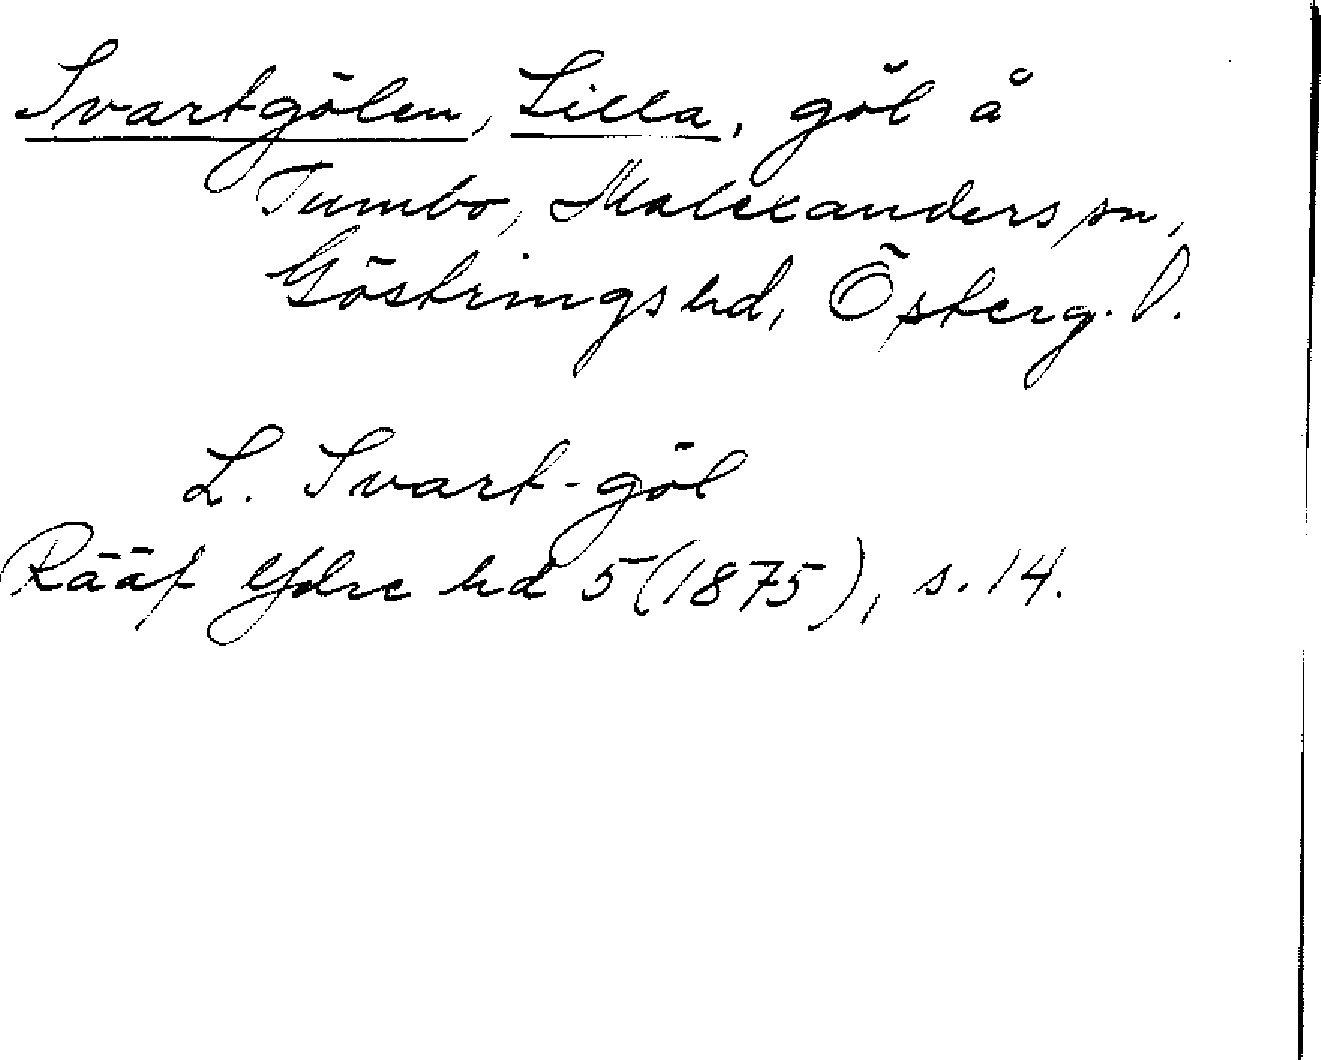 Svartgölen, Lilla, göl å
Tumbo, Malexanders sn,
Göstrings hd, Österg. l.
L. Svart-göl
Rääf Ydre hd 5 (1875), s. 14.